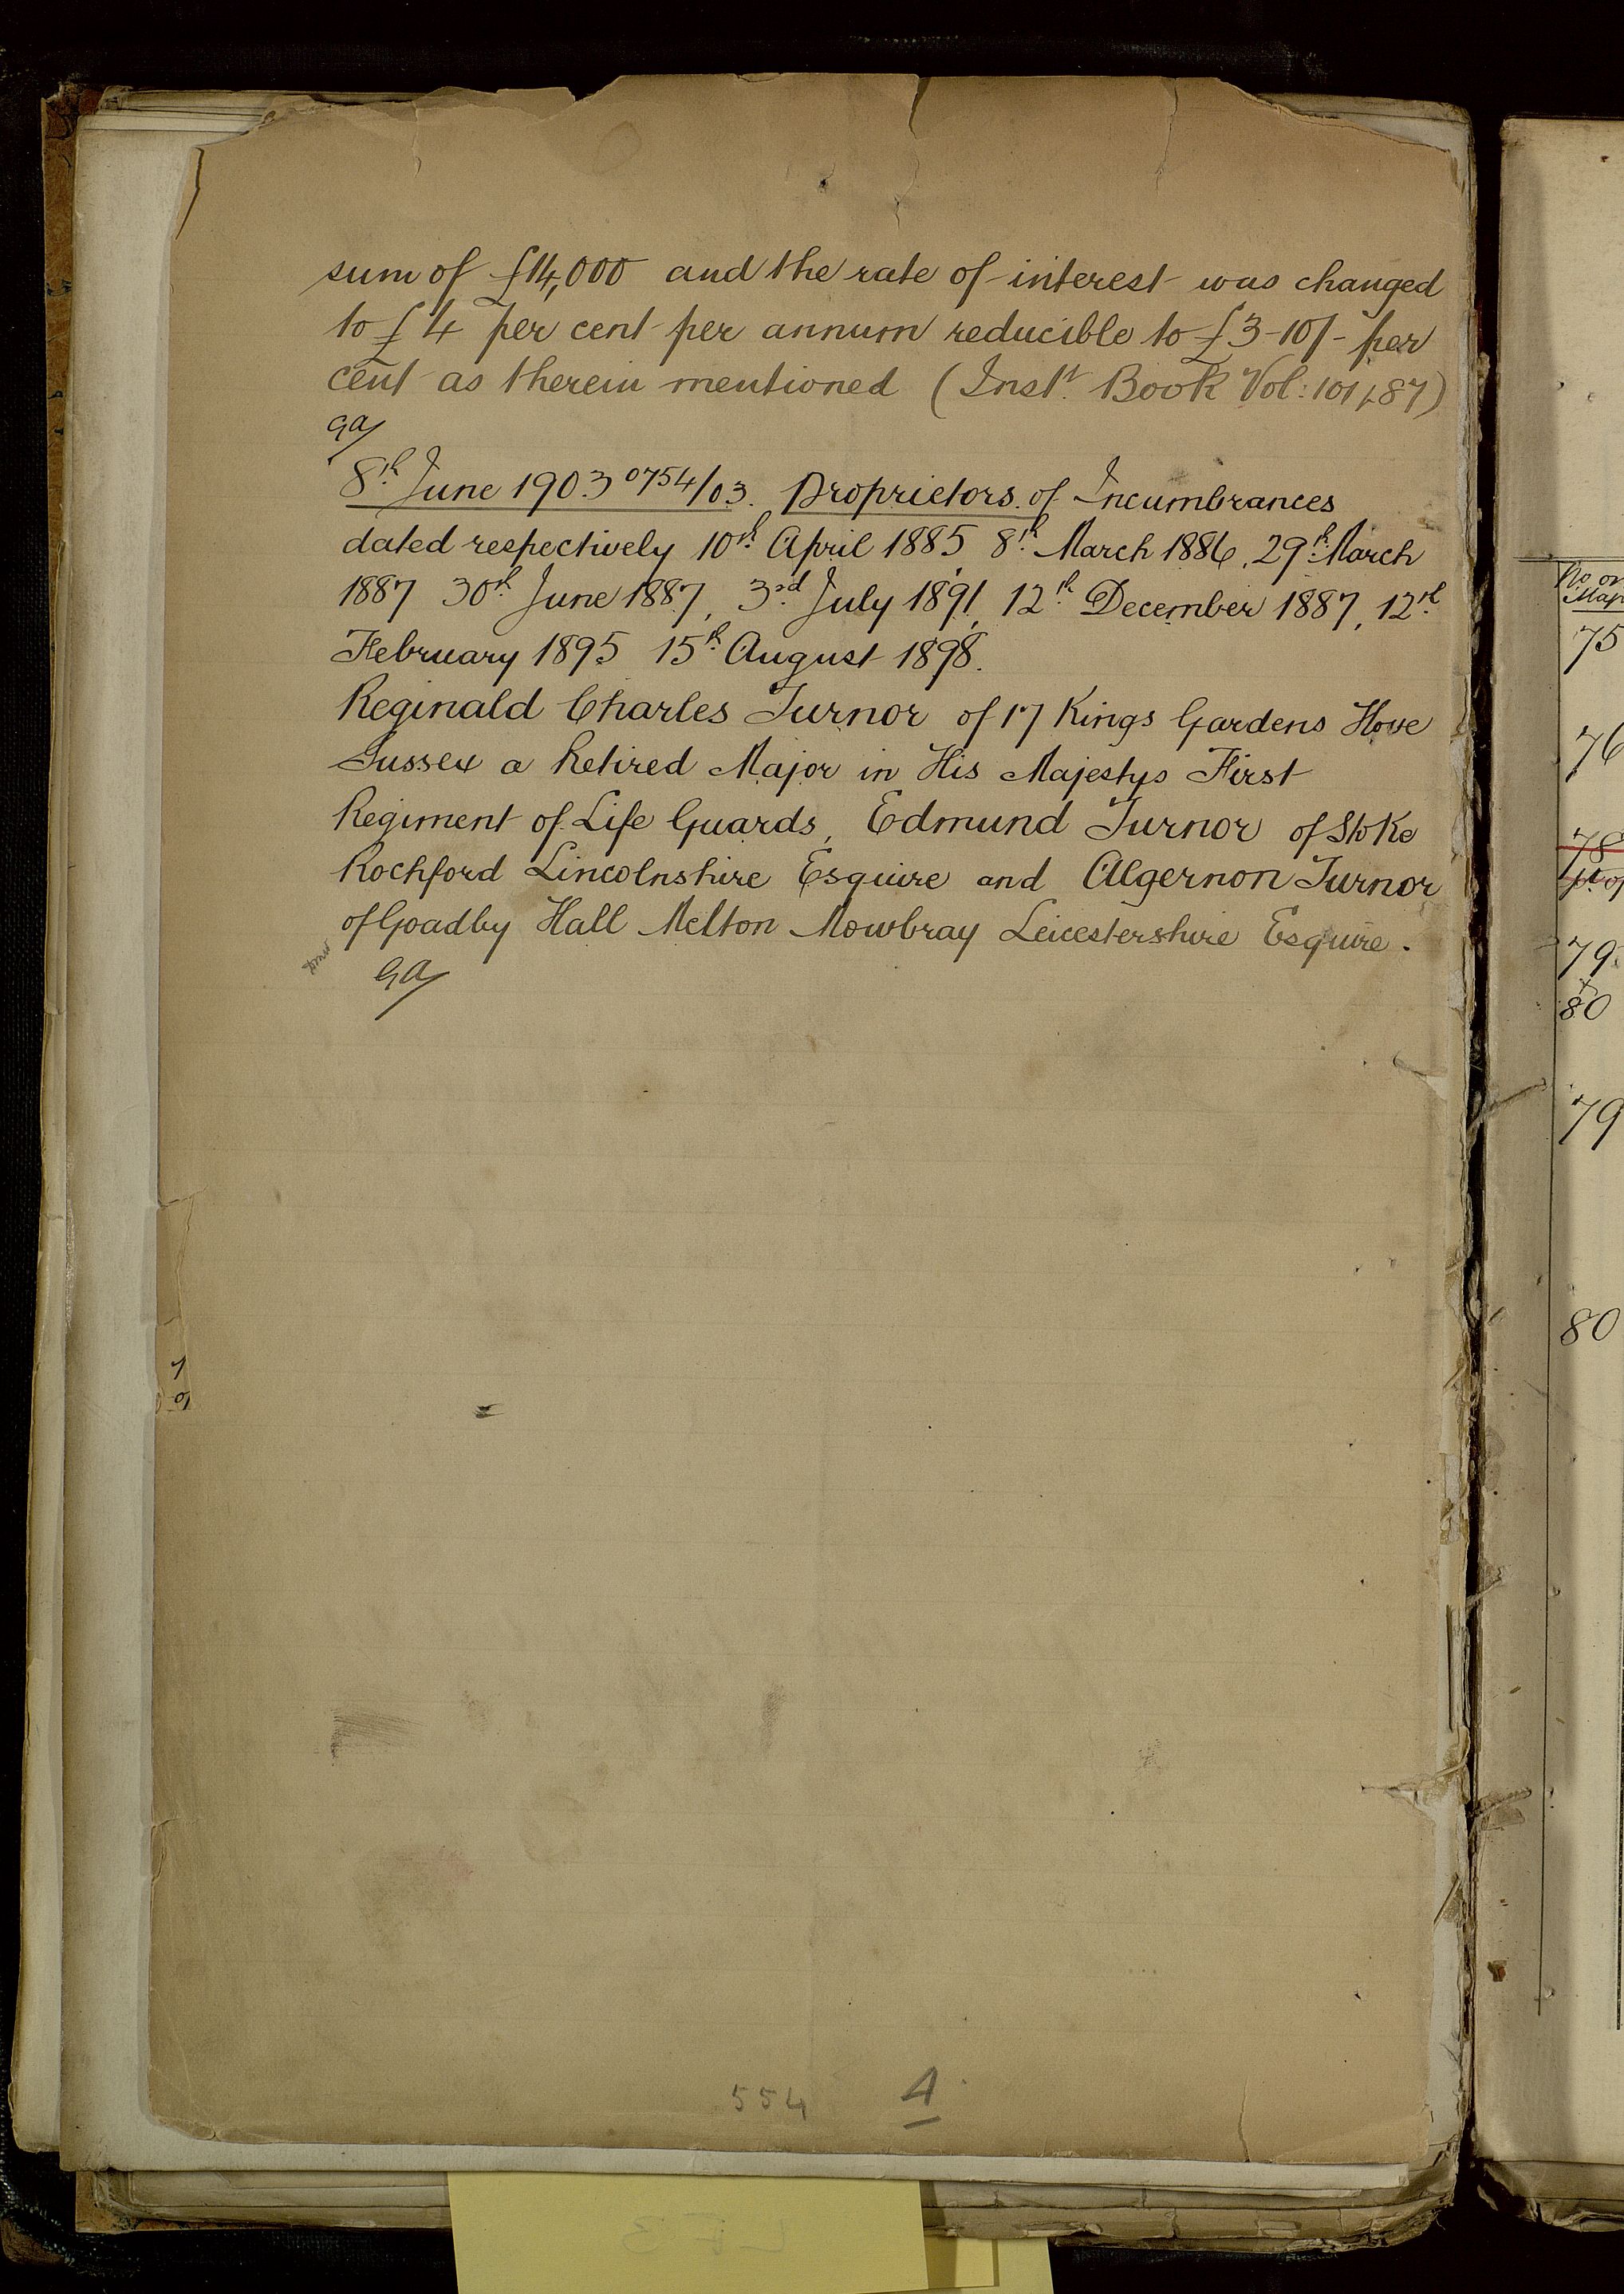 sum of £14,000 and the rate of interest was changed
to £4 per cent per annum reducible to £3-10/- per
cent as therein mentioned (Instt. Book Vol: 101/87)
GA/
8th June 1903 0754/03. Proprietors of Incumbrances
dated respectively 10th April 1885 8th March 1886, 29th March
1887 30th June 1887, 3rd July 1891, 12th December 1887, 12th
February 1895 15th August 1898.
Reginald Charles Turnor of 17 Kings Gardens Hove
Sussex a Retired Major in His Majestys First
Regiment of Life Guards, Edmund Turnor of Stoke
Rochford Lincolnshire Esquire and Algernon Turnor
of Goadby Hall Melton Mowbray Leicestershire Esquire.
GA/
554 4
No on
Map
75
76
78
79
80
79
80